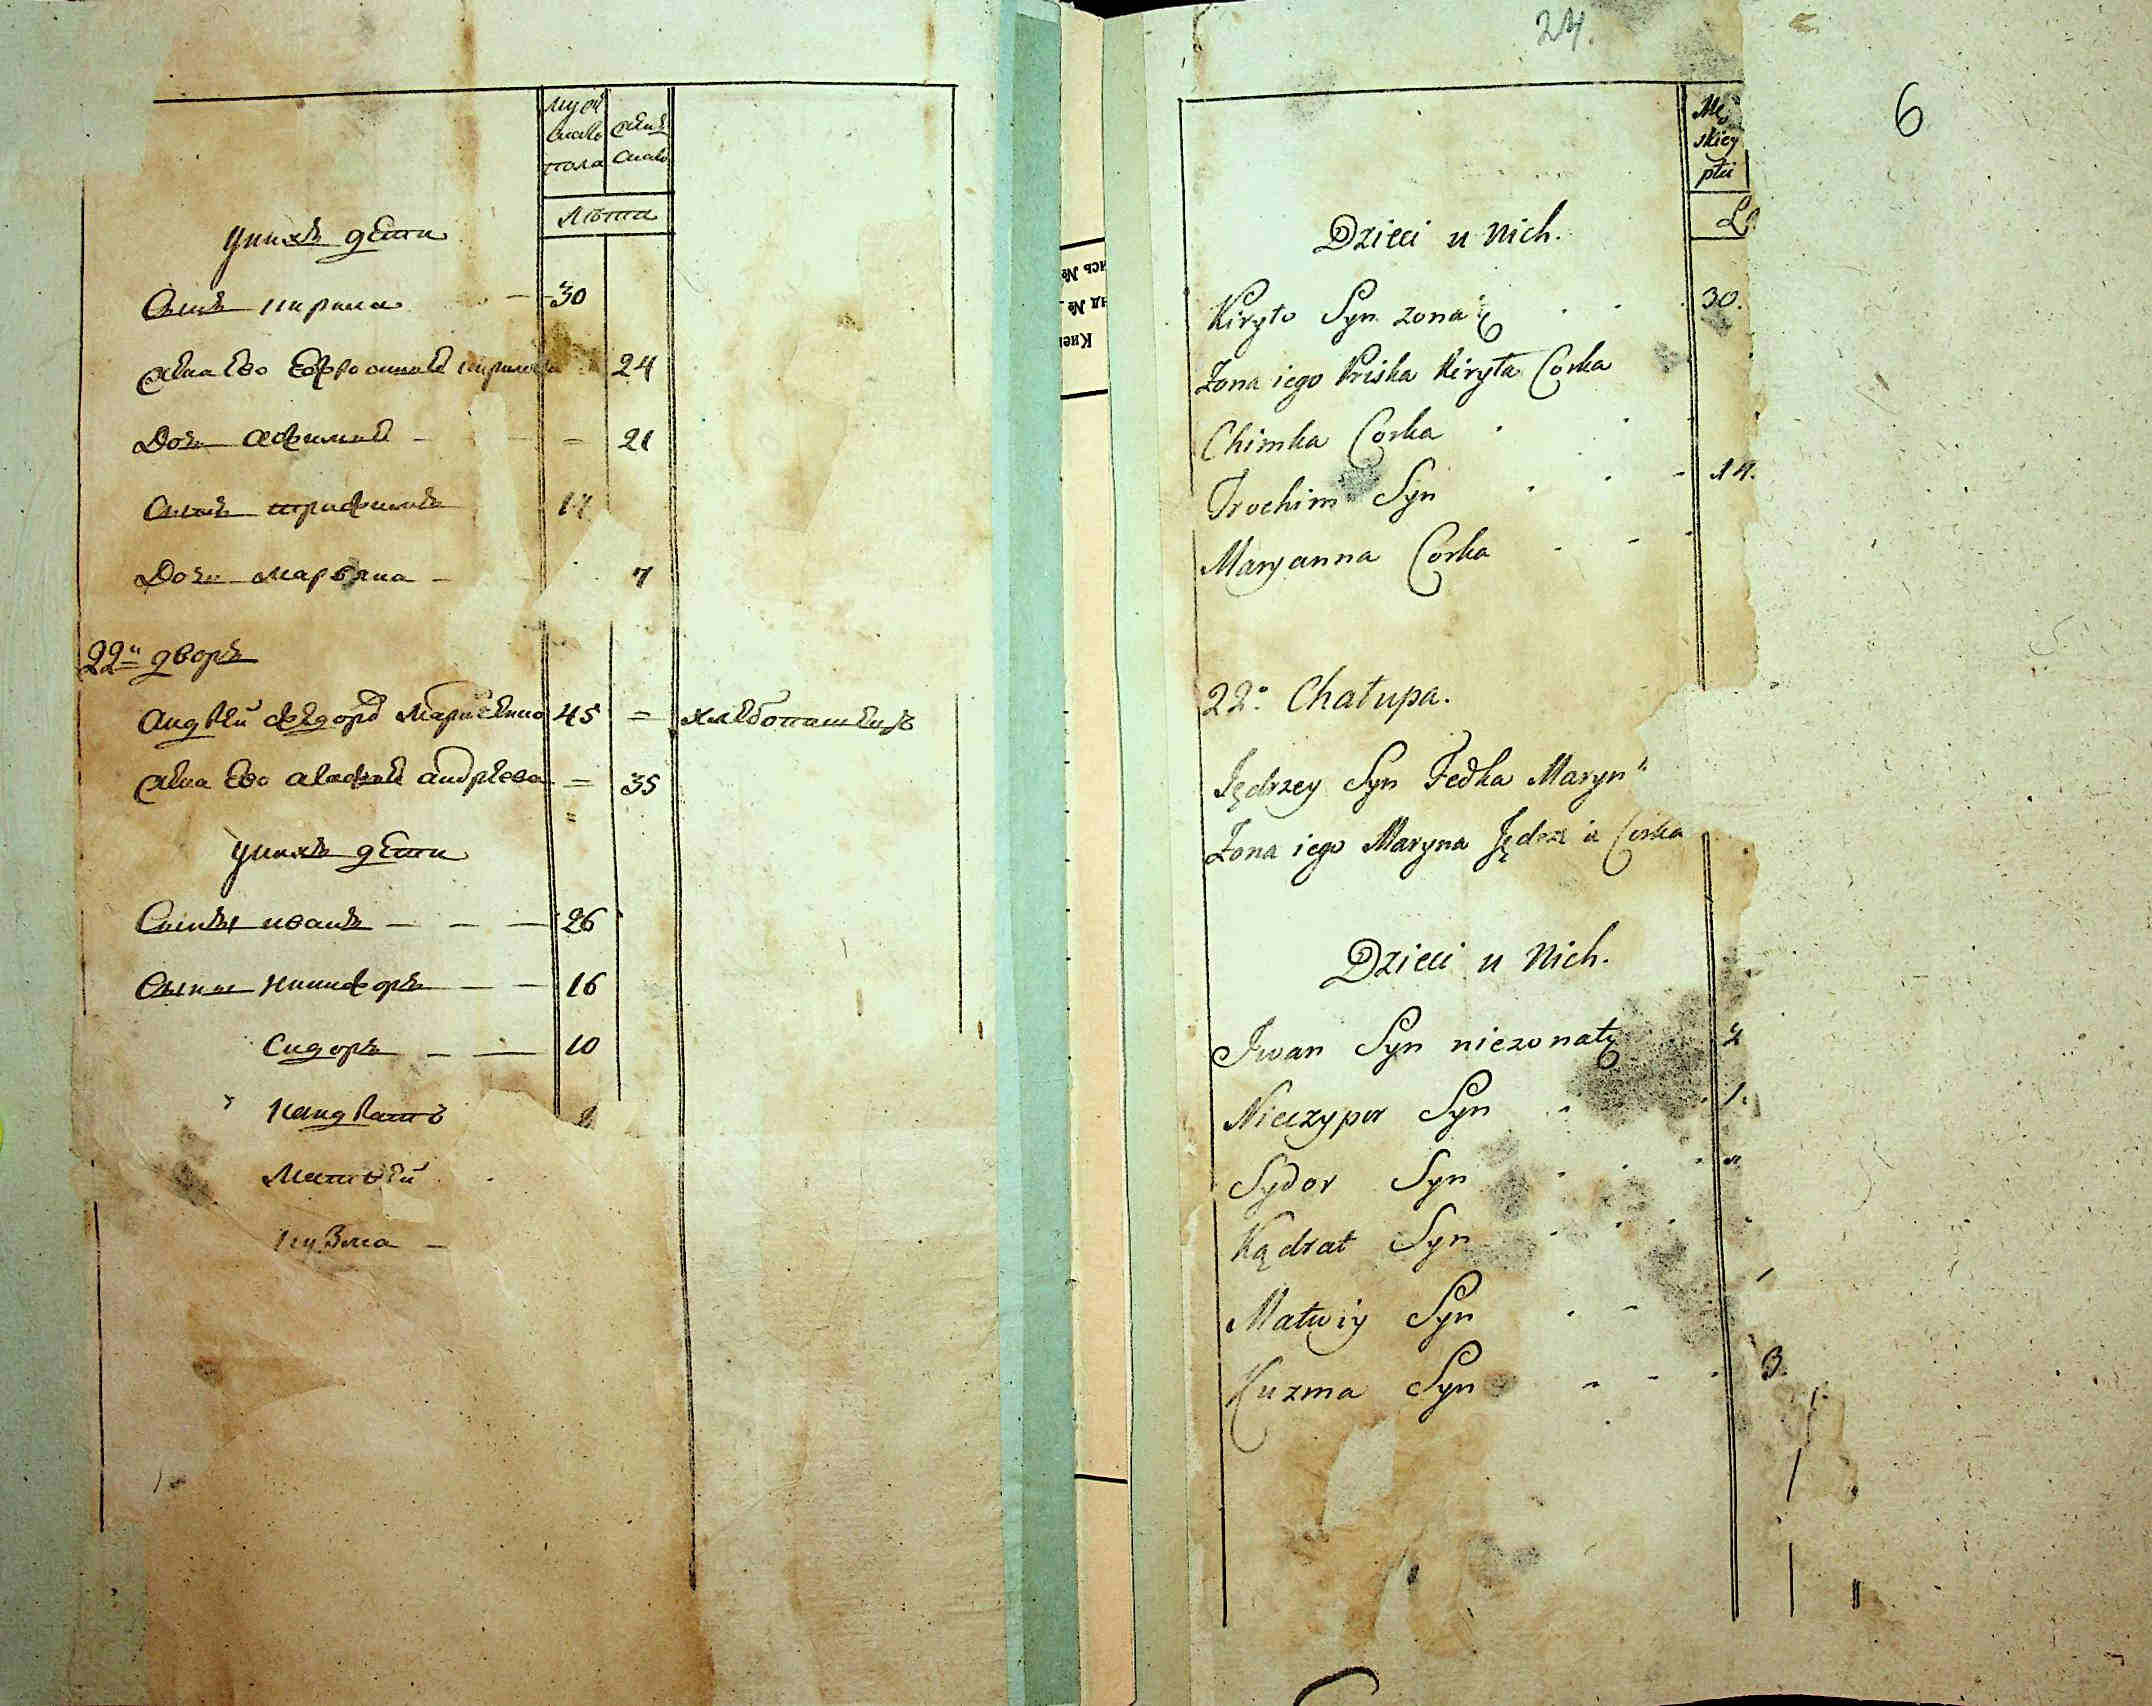 муж
ска
пола
женс
ска
Лѣта
у нихъ дети
Сынъ кирила — 30
жена ево Евфросинья кирилова 24
Дочь афимья — 21
Сынъ трифимъ 14
Дочь марьяна — 7
22й дворъ
андрей федоро 45 = хлебопашецъ
жена ево андреева = 35
у нихъ дети
Сынъ иванъ — — — 26
Сынъ никифоръ — — 16
Сидоръ — — 10
кандратъ
Матвѣй
кузма —
24.
6
Mę
skiey
płci
Dzieci u Nich.
Kiryło Syn żona 30.
Żona iego Priska Kiryła Corka
Chimka Corka
Trochim Syn 14.
Maryanna Corka
22° Chałupa.
Jędrzey Syn Fedka Maryn
Żona iego Maryna Jędrz Corka
Dzieci u Nich.
Jwan Syn nieżonaty 2
Nieczypor Syn 1
Sydor Syn
Kądrat Syn
Matwiy Syn
Kuzma Syn 3